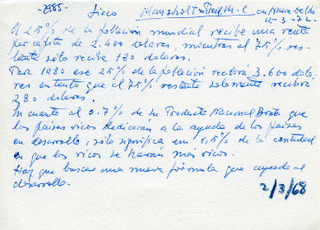 -2985- Sicco Mansholt
4-3-72
El 25% de la población mundial recibe una renta
per cápita de 2.400 dolares, mientras el 75% res-
tante sólo recibe 180 dolares.
Para 1980 ese 25% de la población recibirá 3.600 dola-
res en tanto que el 75% restante solamente recibirá
280 dolares.
En cuanto al 0.7% de su Producto Nacional Bruto que
los países ricos dedicarán a la ayuda de los países
en desarrollo, sólo significa un 1,5% de la cantidad
en que los ricos se harán más ricos.
Hay que buscar una nueva fórmula que ayude al
desarrollo.
2/3/68